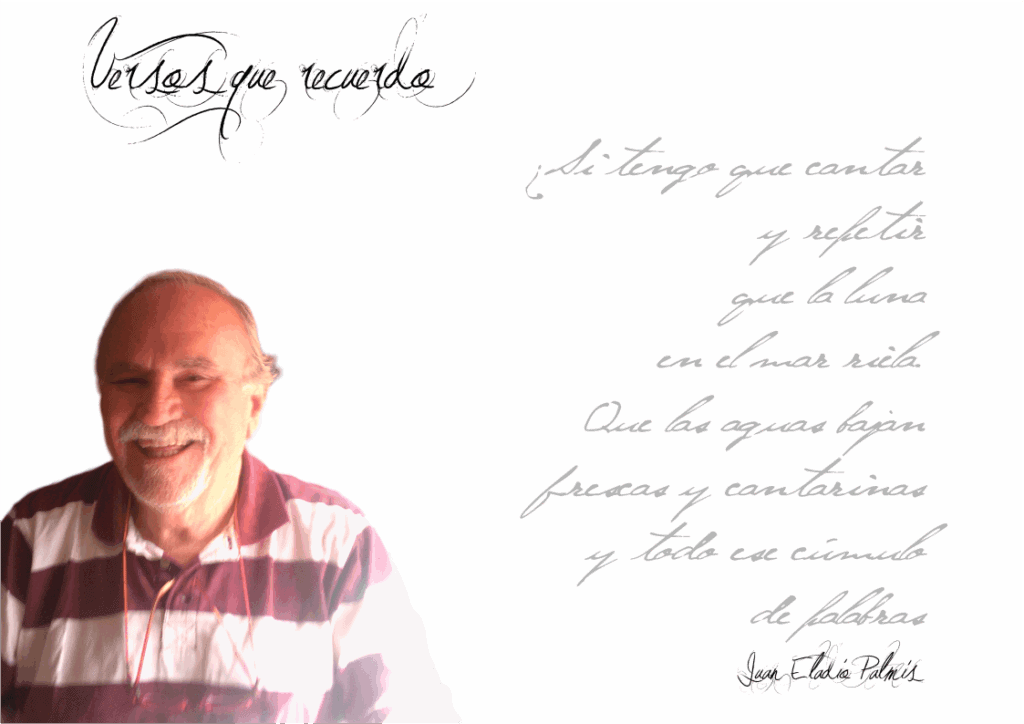 Versos que recuerdo
¿Si tengo que cantar
y repetir
que la luna
en el mar riela.
Que las aguas bajan
frescas y cantarinas
y todo ese cúmulo
de palabras
Juan Eladio Palmis